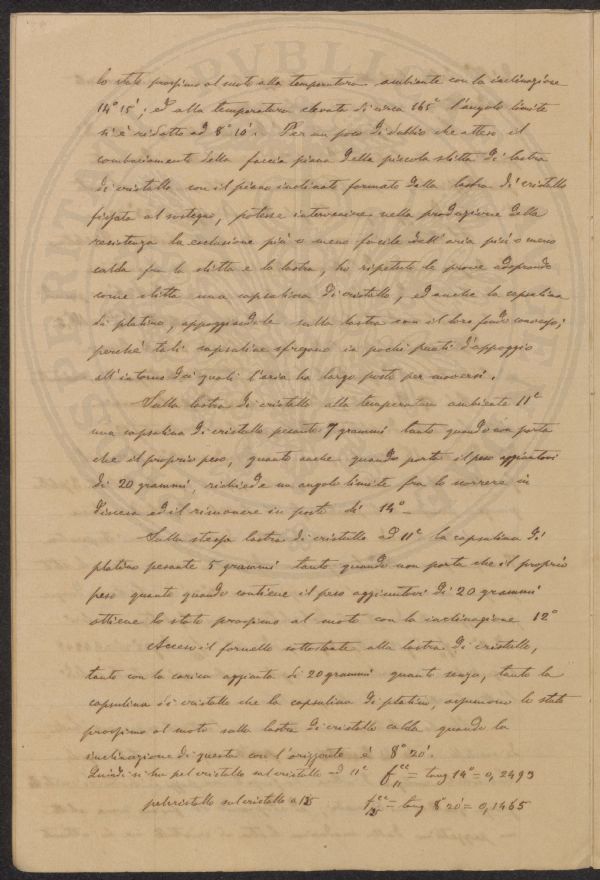 lo stato prossimo al moto alla temperatura ambiente con la inclinazione
14° 15'; ed alla temperatura elevata di circa 165° l'angolo limite
si è ridotto ad 8° 10'. Per un poco di dubbio che atteso il
combaciamento della faccia piana della piccola slitta di lastra
di cristallo con il piano inclinato formato dalla lastra di cristallo
fissata al sostegno, potesse intervenire nella produzione della
resistenza la esclusione più o meno facile dell'aria più o meno
calda fra la slitta e la lastra, ho ripetuto le prove adoprando
come slitta una capsulina di cristallo, ed anche la capsulina
di platino, appoggiandole sulla lastra con il loro fondo convesso;
perchè tali capsuline sfregano in pochi punti d'appoggio
all'intorno dei quali l'aria ha largo posto per muoversi.
Sulla lastra di cristallo alla temperatura ambiente 11°
una capsulina di cristallo pesante 7 grammi tanto quando non porta
che il proprio peso, quanto anche quando porta il peso aggiuntovi
di 20 grammi, richiede un angolo limite fra lo scorrere in
discesa ed il rimanere in posto di 14°
Sulla stessa lastra di cristallo ad 11° la capsulina di
platino pesante 5 grammi tanto quando non porta che il proprio
peso quanto quando contiene il peso aggiuntovi di 20 grammi
ottiene lo stato prossimo al moto con la inclinazione 12°
Acceso il fornello sottostante alla lastra di cristallo,
tanto con la carica aggiunta di 20 grammi quanto senza, tanto la
capsulina di cristallo che la capsulina di platino, assumono lo stato
prossimo al moto sulla lastra di cristallo calda quando la
inclinazione di questa con l'orizzonte è 8° 20'.
Quindi si ha pel cristallo sul cristallo ad 11° f = tang 14° = 0,2493
pel cristallo sul cristallo a f = tang 8° 20' = 0,1465